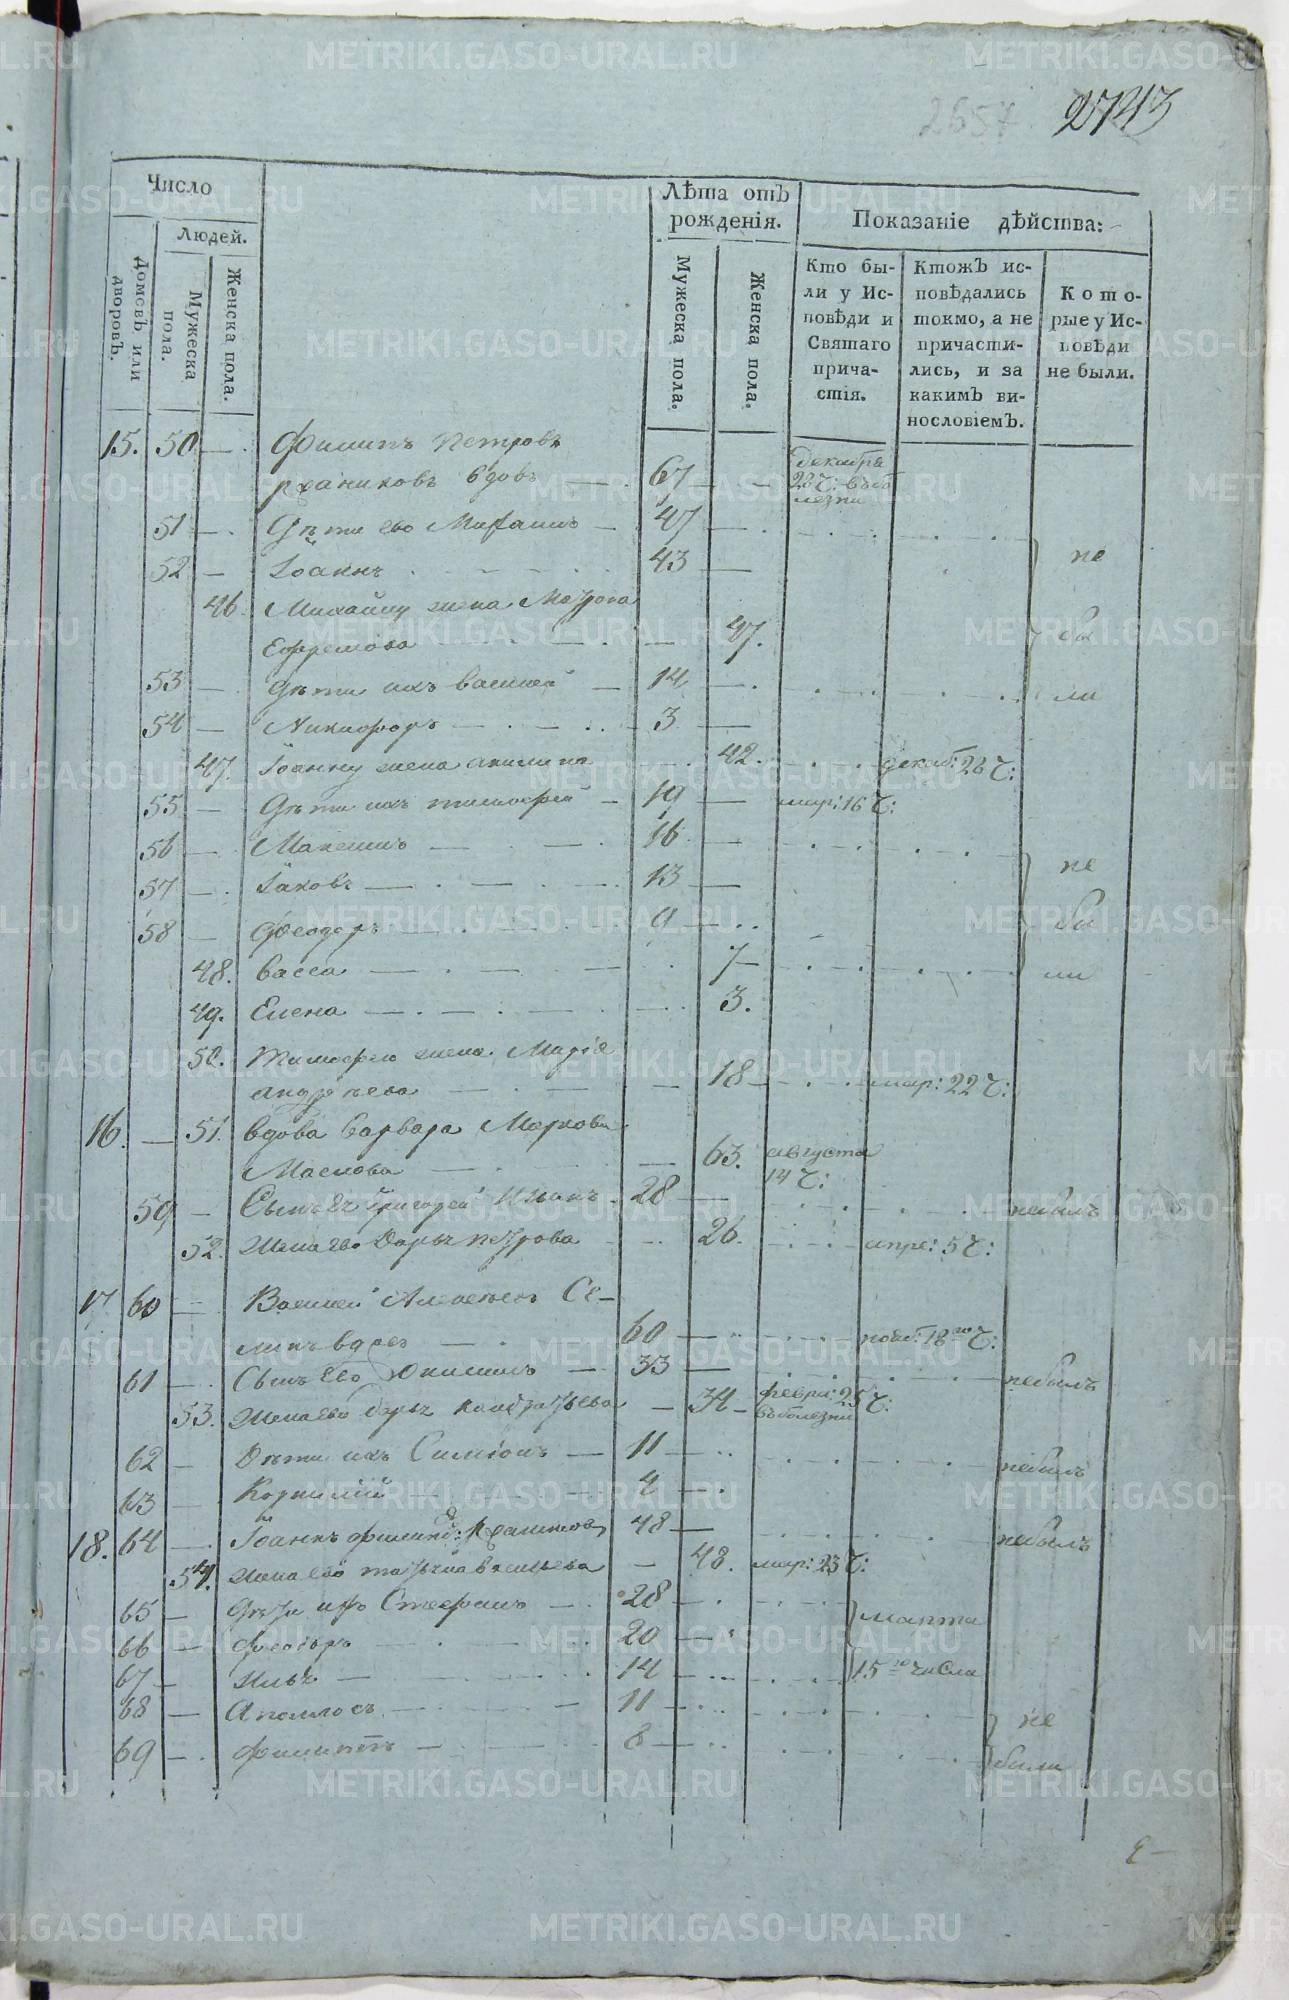 2657 2743
Число
Людей.
Домовъ или дворовъ.
Мужеска пола.
Женска пола.
Лѣта отъ рожденія.
Мужеска пола.
Женска пола.
Показаніе дѣйства:
Кто бы-
ли у Ис-
повѣди и
Святаго
прича-
стія.
Ктожъ ис-
повѣдались
токмо, а не
причасти-
лись, и за
какимъ ви-
нословіемъ.
Кото-
рые у Ис-
повѣди
не были.
15. 50 Филипъ Петровъ
вдовъ 67 декабря 23 ч: въ бо
лезни
51 Дѣти его Михаилъ 47
52 Іоаннъ 43 не
46. Михаилу жена
Ефремова 47. бы
53 Дѣти ихъ Василей 14 ли
54 Никифоръ 3
47. Іоанну жена акилина 42. декаб: 23 ч:
55 Дѣти ихъ тимофей 19 мар: 16 ч:
56 Максимъ 16
57 Іаковъ 13 не
58 Феодоръ 9 бы
48. Васса 7 ли
49. Елена 3.
50. Тимофею жена Марія
андрѣева 18 мар: 22 ч:
16. 51. Вдова Варвара Маркова
Маслова 63. августа
14 ч:
59 Сынъ Ея Григорей 28 небылъ
52. Жена его Дарья петрова 26. апре: 5 ч:
17 60 Василей Алексѣевъ Се-
60 нояб: 18го ч:
61 Сынъ Его 33 небылъ
53. Жена его дарья 34 февра: 25 ч:
въ болезни
62 Дѣти ихъ Симіонъ 11 небылъ
63 Корнилій 4
18. 64 Іоаннъ 48 небылъ
54. Жена его 48. мар: 23 ч:
65 Дѣти ихъ Стефанъ 28 марта
66 Феодоръ 20
67 Илья 14 15го числа
68 Аполлосъ 11 не
69 Филиппъ 8 были